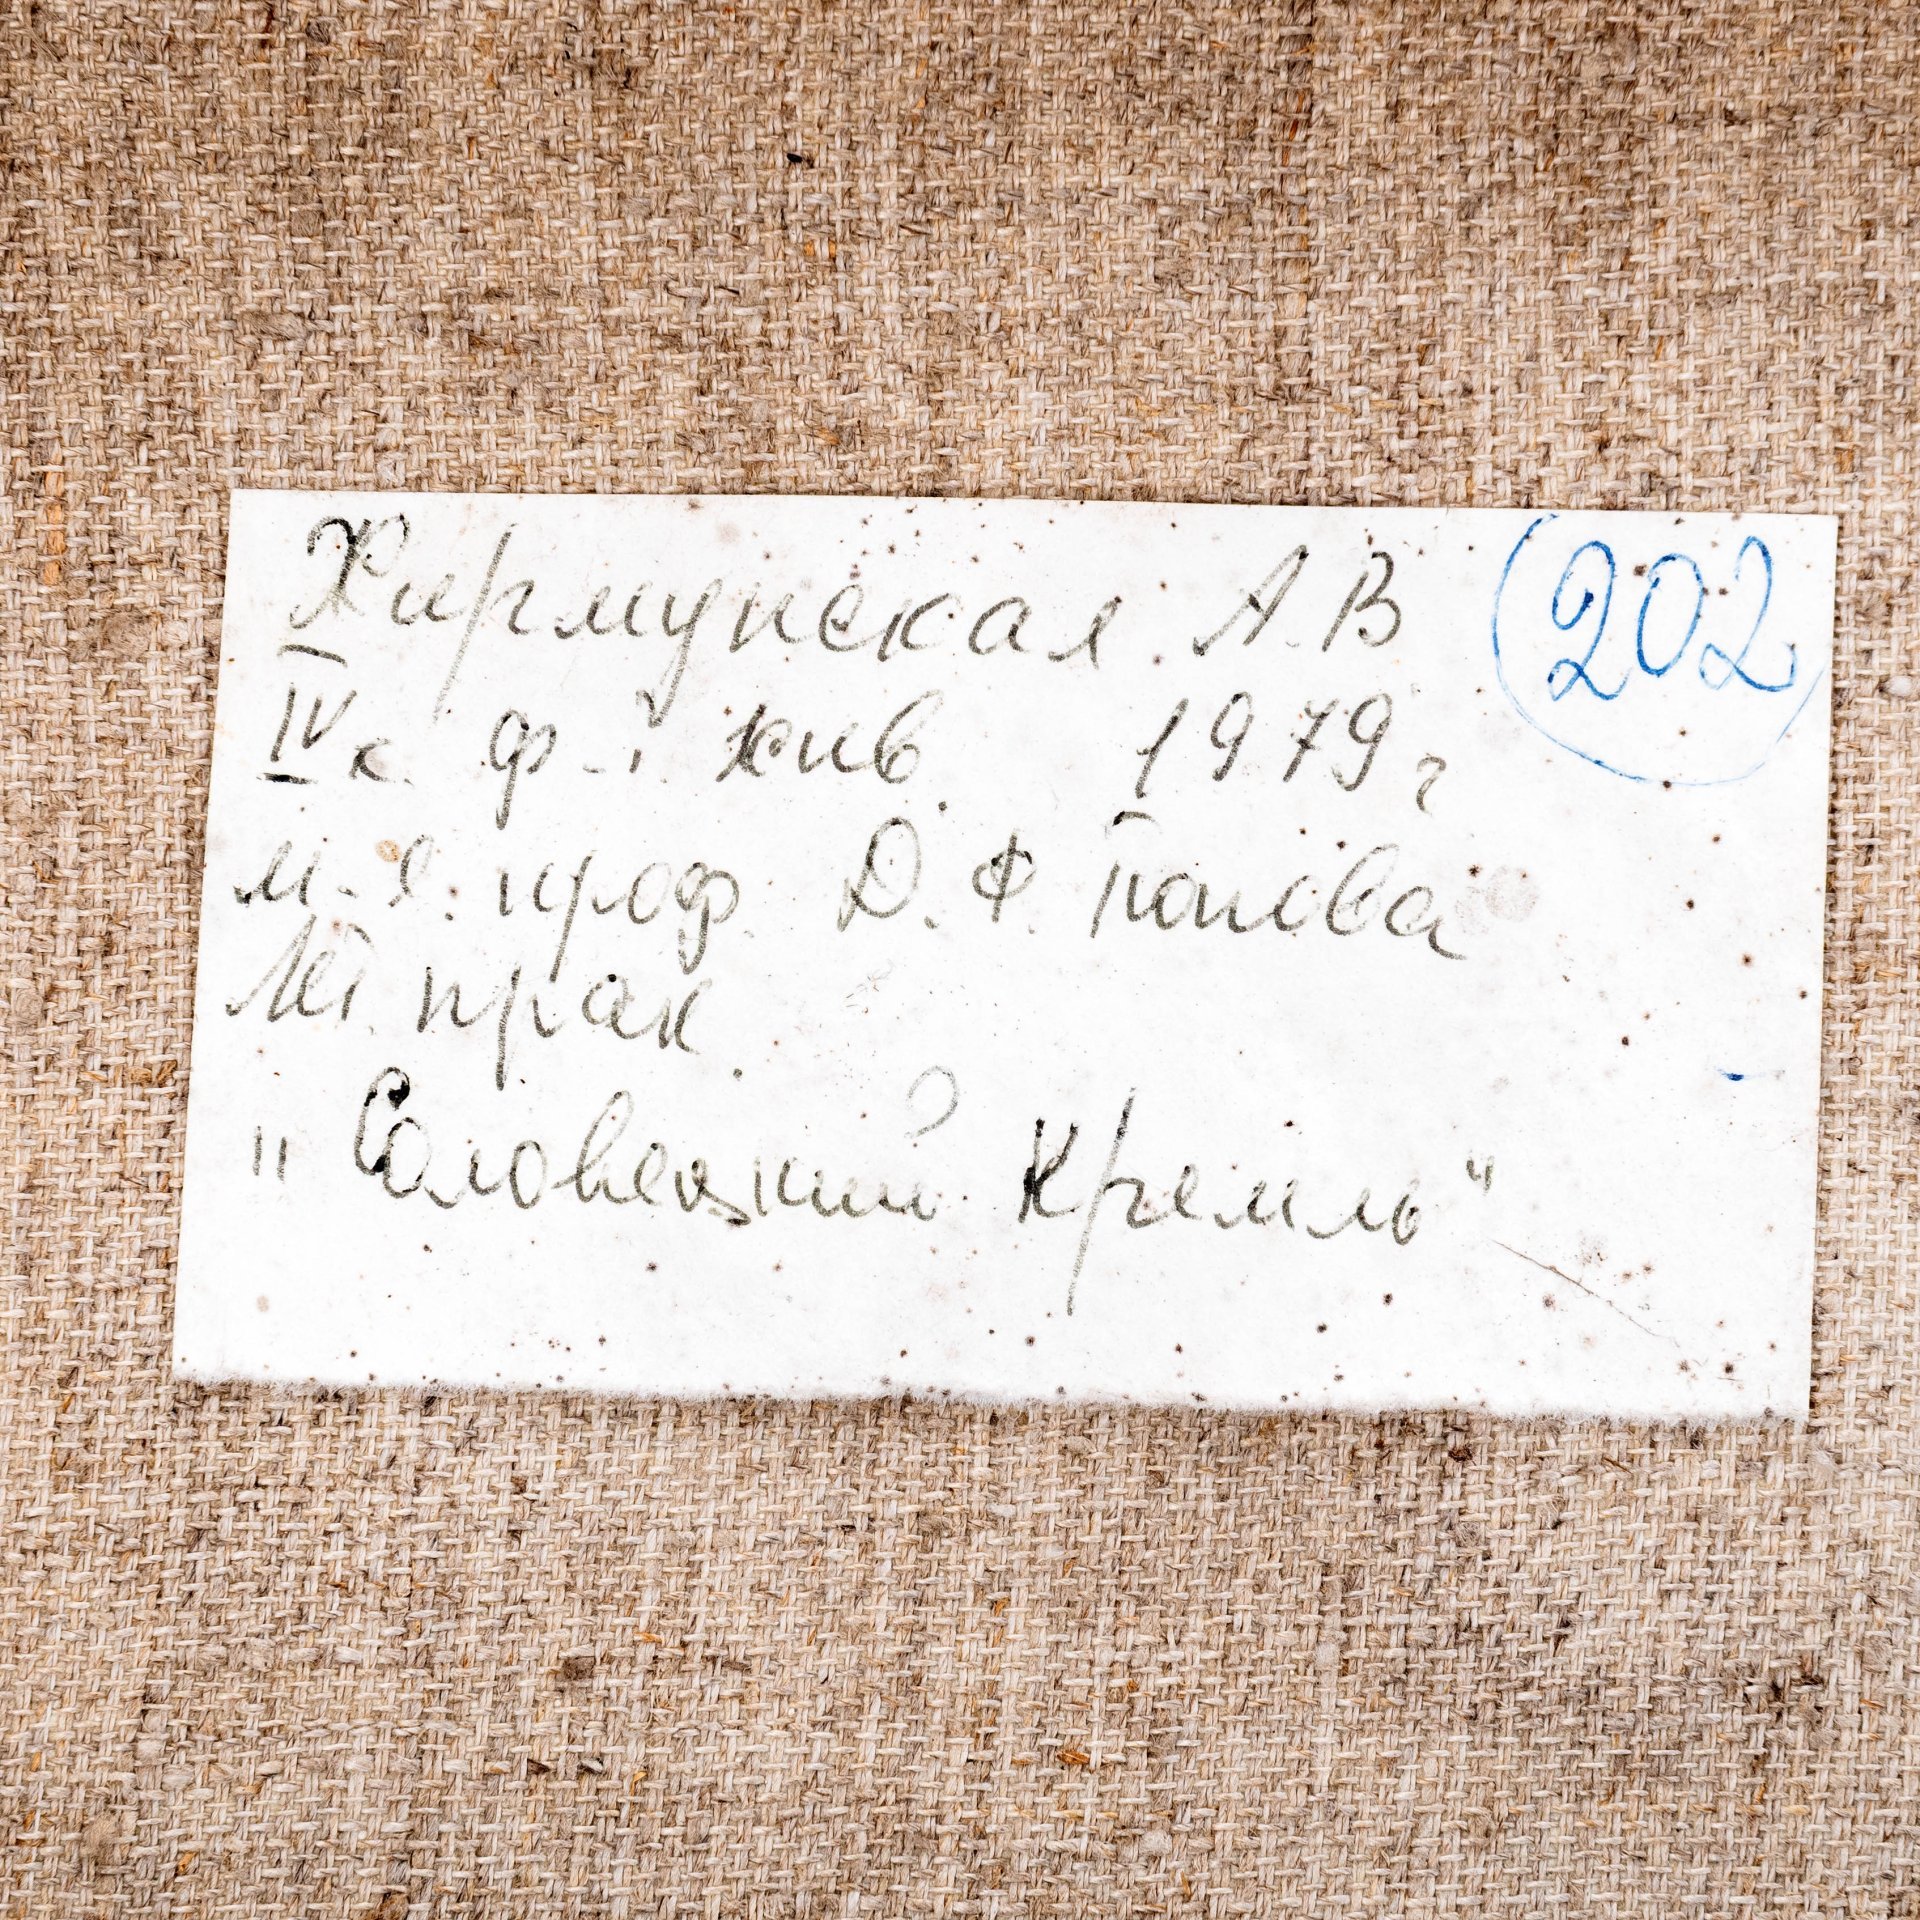 Жирмунская А.В 202
IV к. ф-т жив. 1979 г
м-я. проф. Д. Ф. Попова
Лет. прак.
"Соловецкий Кремль"